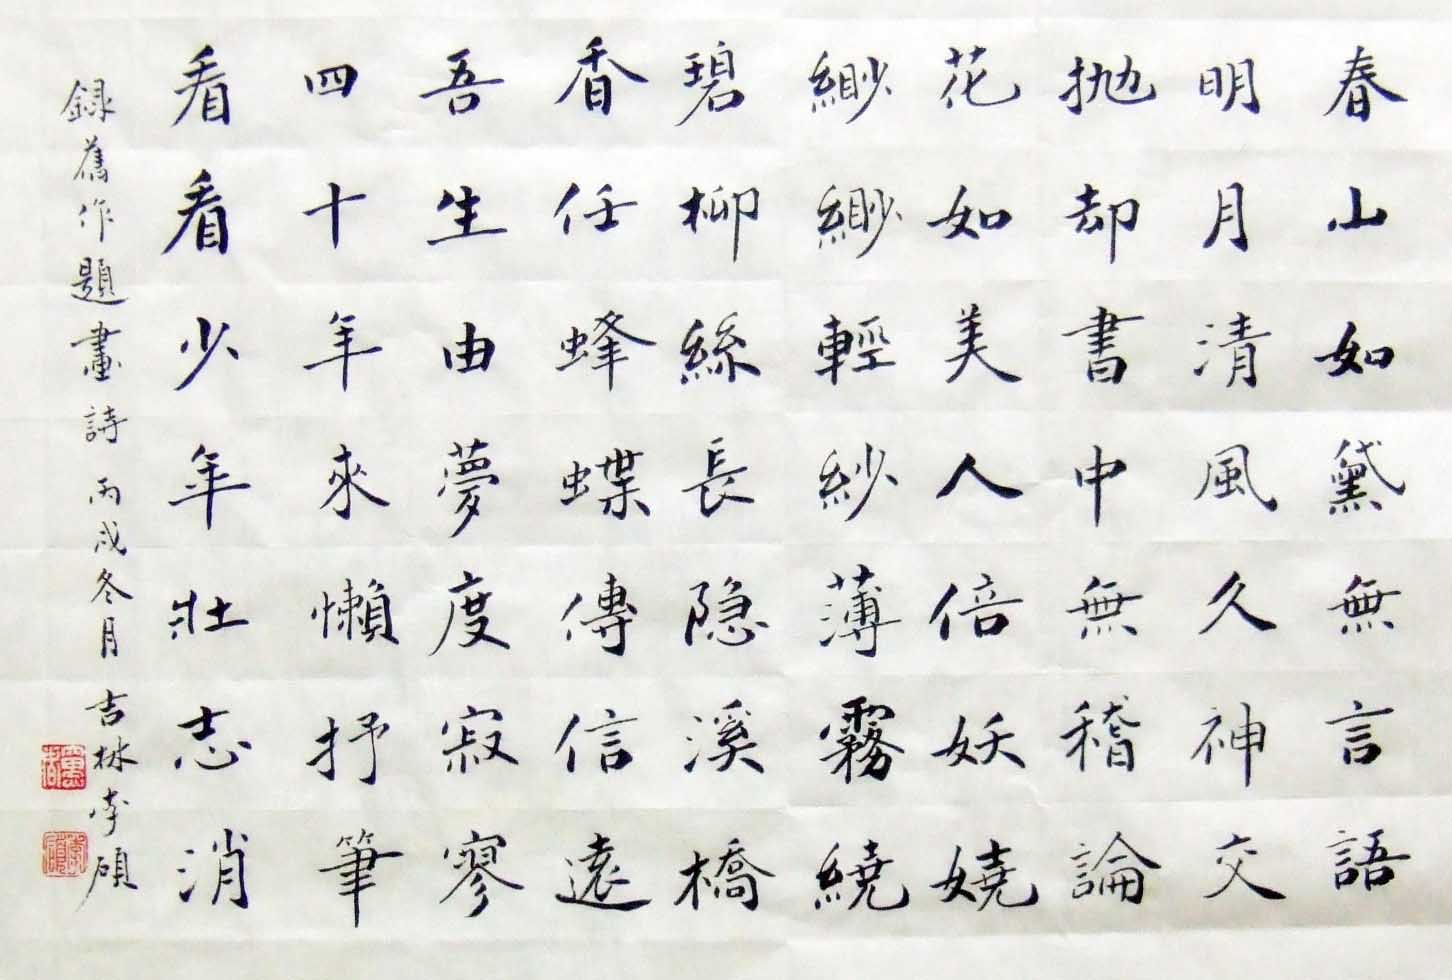 春山如黛無言語
明月清風久神交
抛却書中無稽論
花如美人倍妖嬈
緲緲輕紗薄霧繞
碧柳絲長隐溪橋
香任蜂蝶傳信遠
吾生由夢度寂寥
四十年來懶抒筆
看看少年壯志消
録舊作題畫詩丙戌冬月吉林李碩